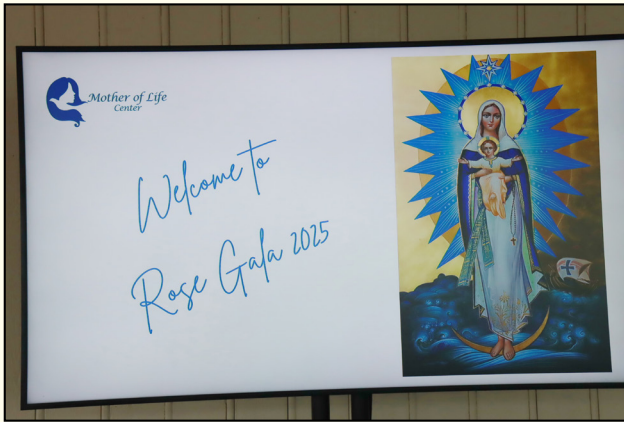 Mother of Life
Center
Welcome to
Rose Gala 2025